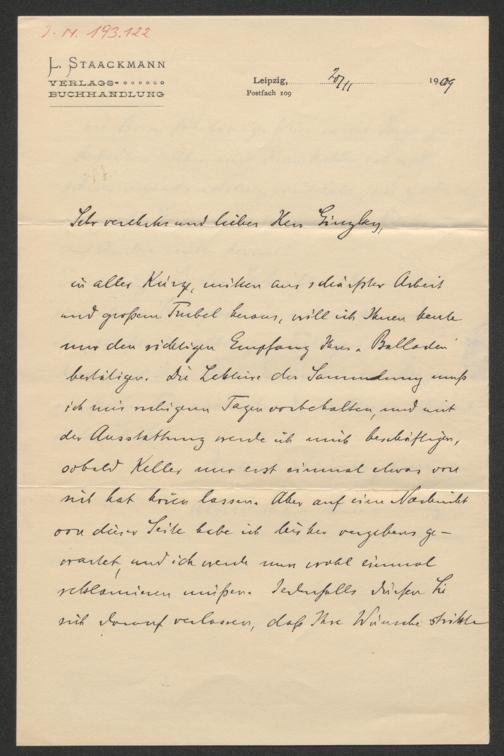 J. N. 193.122
L. STAACKMANN
VERLAGS-
BUCHHANDLUNG
Leipzig, 20/11 1909
Postfach 109
Sehr verehrter und lieber Herr Ginzkey,
in aller Kürze, mitten aus schärfster Arbeit
und großem Trubel heraus, will ich Ihnen heute
nur den richtigen Empfang Ihrer „Balladen"
bestätigen. Die Lektüre der Sammlung muß
ich mir ruhigeren Tagen vorbehalten, und mit
der Ausstattung werde ich mich beschäftigen,
sobald Keller nur erst einmal etwas von
sich hat hören lassen. Aber auf eine Nachricht
von dieser Seite habe ich bisher vergebens ge-
wartet, und ich werde nun wohl einmal
reklamieren müßen. Jedenfalls dürfen Sie
sich darauf verlassen, daß Ihre Wünsche strikte